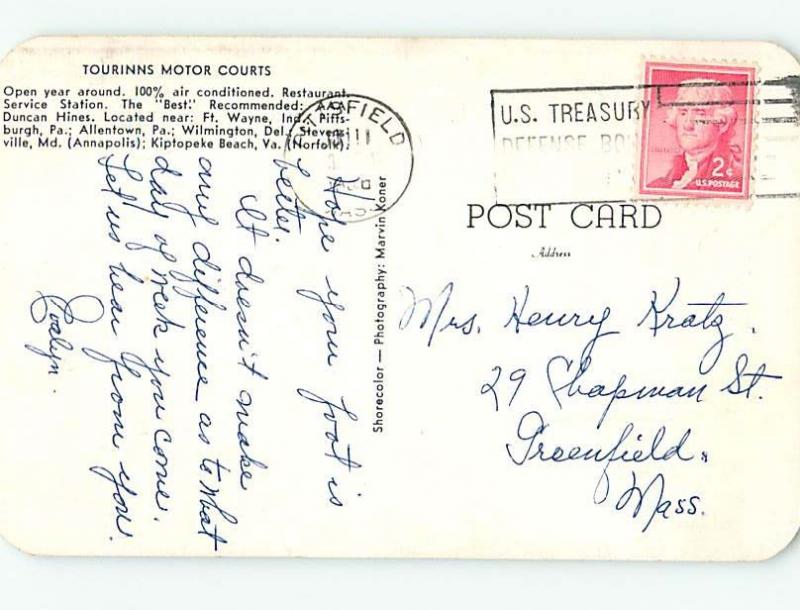 TOURINNS MOTOR COURTS
Open year around. 100% air conditioned. Restaurant.
Service Station. The "Best." Recommended: AAA
Duncan Hines. Located near: Ft. Wayne, Ind.; Pitts-
burgh, Pa.; Allentown, Pa.; Wilmington, Del.; Stevens-
ville, Md. (Annapolis); Kiptopeke Beach, Va. (Norfolk).
Hope your foot is
better.
It doesn't make
any difference as to what
day of week you come.
Let us hear from you.
Evelyn.
Shorecolor — Photography: Marvin Koner
TSFIELD
U.S. TREASURY
DEFENSE BO
2¢
U.S. POSTAGE
POST CARD
Address
Mrs. Henry Kratz.
29 Chapman St.
Greenfield,
Mass.